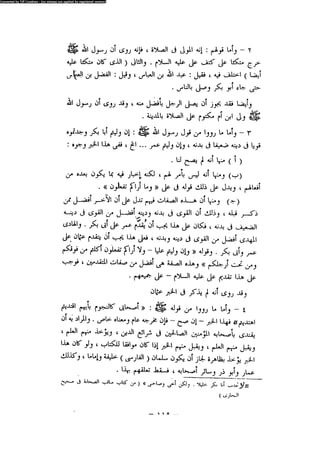 Converted by Tiff Combine - (no stamps are applied by registered version)
٢ – وأما قولهم : إنه المولى فى الصلاة ، فإنه روى أن رسول الله ﷺ
خرج متكئا على كتف على عليه السلام . والثانى ( الذى كان متكئا عليه
أيضا ) اختلف فيه ، فقيل : عبد الله بن العباس ، وقيل : الفضل بن العباس
حتى جاء أبو بكر وصلى بالناس .
وأيضا فقد يجوز أن يصلى الرجل بأفضل منه ، وقد روى أن رسول الله
ﷺ ولى ابن أم مكتوم على الصلاة بالمدينة .
٣ – وأما ما رووا من قول رسول الله ﷺ : إن وليتم أبا بكر وجدتموه
قويا فى دينه ضعيفا فى بدنه ، وإن وليتم عمر ... الخ ، ففى هذا الخبر وجوه :
( أ ) منها أنه لم يصح لنا .
(ب) ومنها أنه ليس بأمر لهم ، لكنه إخبار فيه بما يكون من بعده من
أفعالهم ، ويدل على ذلك قوله فى على « وما أراكم تفعلون » .
(ج) ومنها أن هذه الصفات فيهم تدل على أن الآخر أفضل ممن
ذكر قبله ، وذلك أن القوى فى بدنه ودينه أفضل من القوى فى دينه
الضعيف فى بدنه ، فكان على هذا يجب أن يقدم عمر على أبى بكر . والهادى
المهدى أفضل من القوى فى دينه وبدنه ، فعلى هذا يجب أن يتقدم على عثمان
عمر وأبى بكر . وقوله « وإن وليتم عليا – ولا أراكم تفعلون أكلتم من فوقكم
ومن تحت أرجلكم » وهذه الصفة هى أفضل من صفات المتقدمين ، فوجب
على هذا تقديم على عليه السلام – على جميعهم .
وقد روى أنه لم يذكر فى الخبر عثمان
٤ – وأما ما رووا من قوله ﷺ : « أصحابى كالنجوم بأيهم اقتديتم
اهتديتم » فهذا الخبر – إن صح – فإن مخرجه عام ومعناه خاص . والمراد به أن
يقتدى بأصحابه المؤمنين الصالحين فى شرائع الدين ، ويؤخذ منهم العلم ،
ويقبل منهم العلم ، ويقبل منهم الخبر إذا كان موافقا للكتاب ، ولو كان هذا
الخبر يؤخذ بظاهره لجاز أن يكون سلمان ( الفارسى ) خليفة وإماما ، وكذلك
عمار وأبو ذر وسائر أصحابه ، فسقط تعلقهم بهذا .
أبا بكر خليلا . ولكن أخى وصاحبى » ( من كتاب مناقب الصحابة فى صحيح
البخارى )
– ١١٥ –